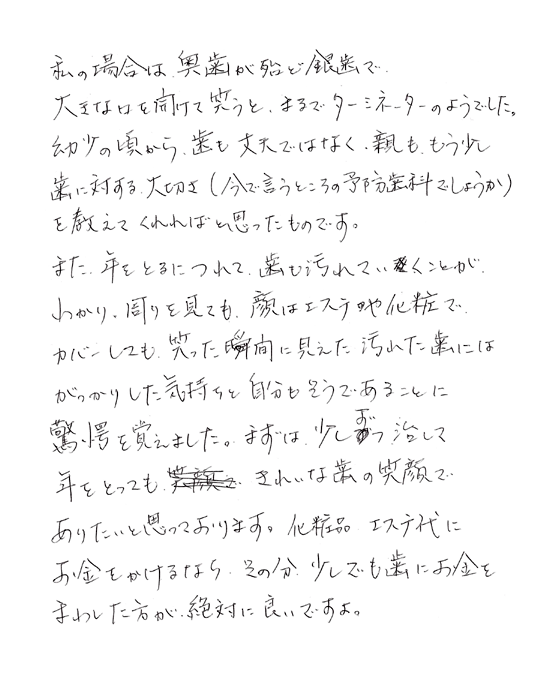 私の場合は、奥歯が殆ど銀歯で、
大きな口を開けて笑うと、まるでターミネーターのようでした。
幼少の頃から、歯も丈夫ではなく、親も、もう少し
歯に対する、大切さ(今で言うところの予防歯科でしょうか)
を教えてくれればと思ったものです。
また、年をとるにつれて、歯も汚れていくことが、
わかり、周りを見ても、顔はエステや化粧で、
カバーしても、笑った瞬間に見えた汚れた歯には
がっかりした気持ちと自分もそうであることに
驚愕を覚えました。まずは、少しずつ治して
年をとっても、きれいな歯の笑顔で
ありたいと思っております。化粧品、エステ代に
お金をかけるなら、その分、少しでも歯にお金を
まわした方が、絶対に良いですよ。